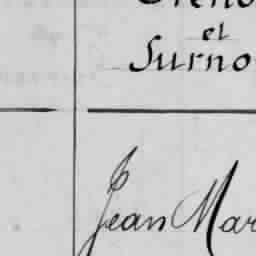 et
Surno
Jean Mar